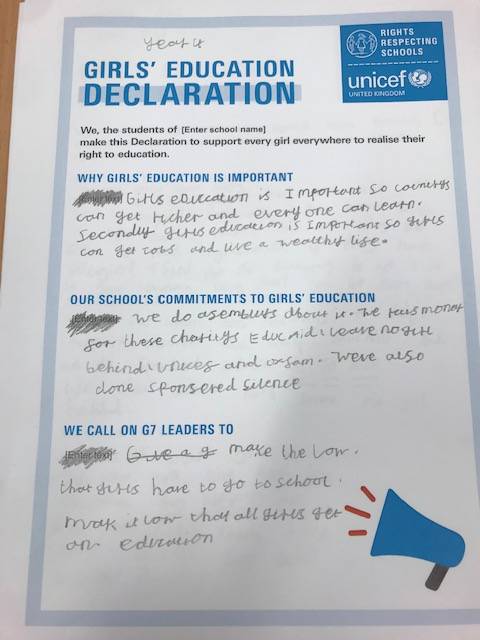 year 4
RIGHTS
RESPECTING
SCHOOLS
unicef
UNITED KINGDOM
GIRLS' EDUCATION
DECLARATION
We, the students of [Enter school name]
make this Declaration to support every girl everywhere to realise their
right to education.
WHY GIRLS' EDUCATION IS IMPORTANT
[Enter text] Girls education is Important so countrys
can get richer and every one can learn.
Secondly girls education is Important so girls
can get jobs and live a wealthy life.
OUR SCHOOL'S COMMITMENTS TO GIRLS' EDUCATION
[Enter text] we do asemblys about it. We rais money
for these charitys Educ Aid, leave no girl
behind, voices and oxfam. Weve also
done sponsered silence
WE CALL ON G7 LEADERS TO
[Enter text] Give a g make the low.
that girls have to go to school.
Mak it low that all girls get
an education